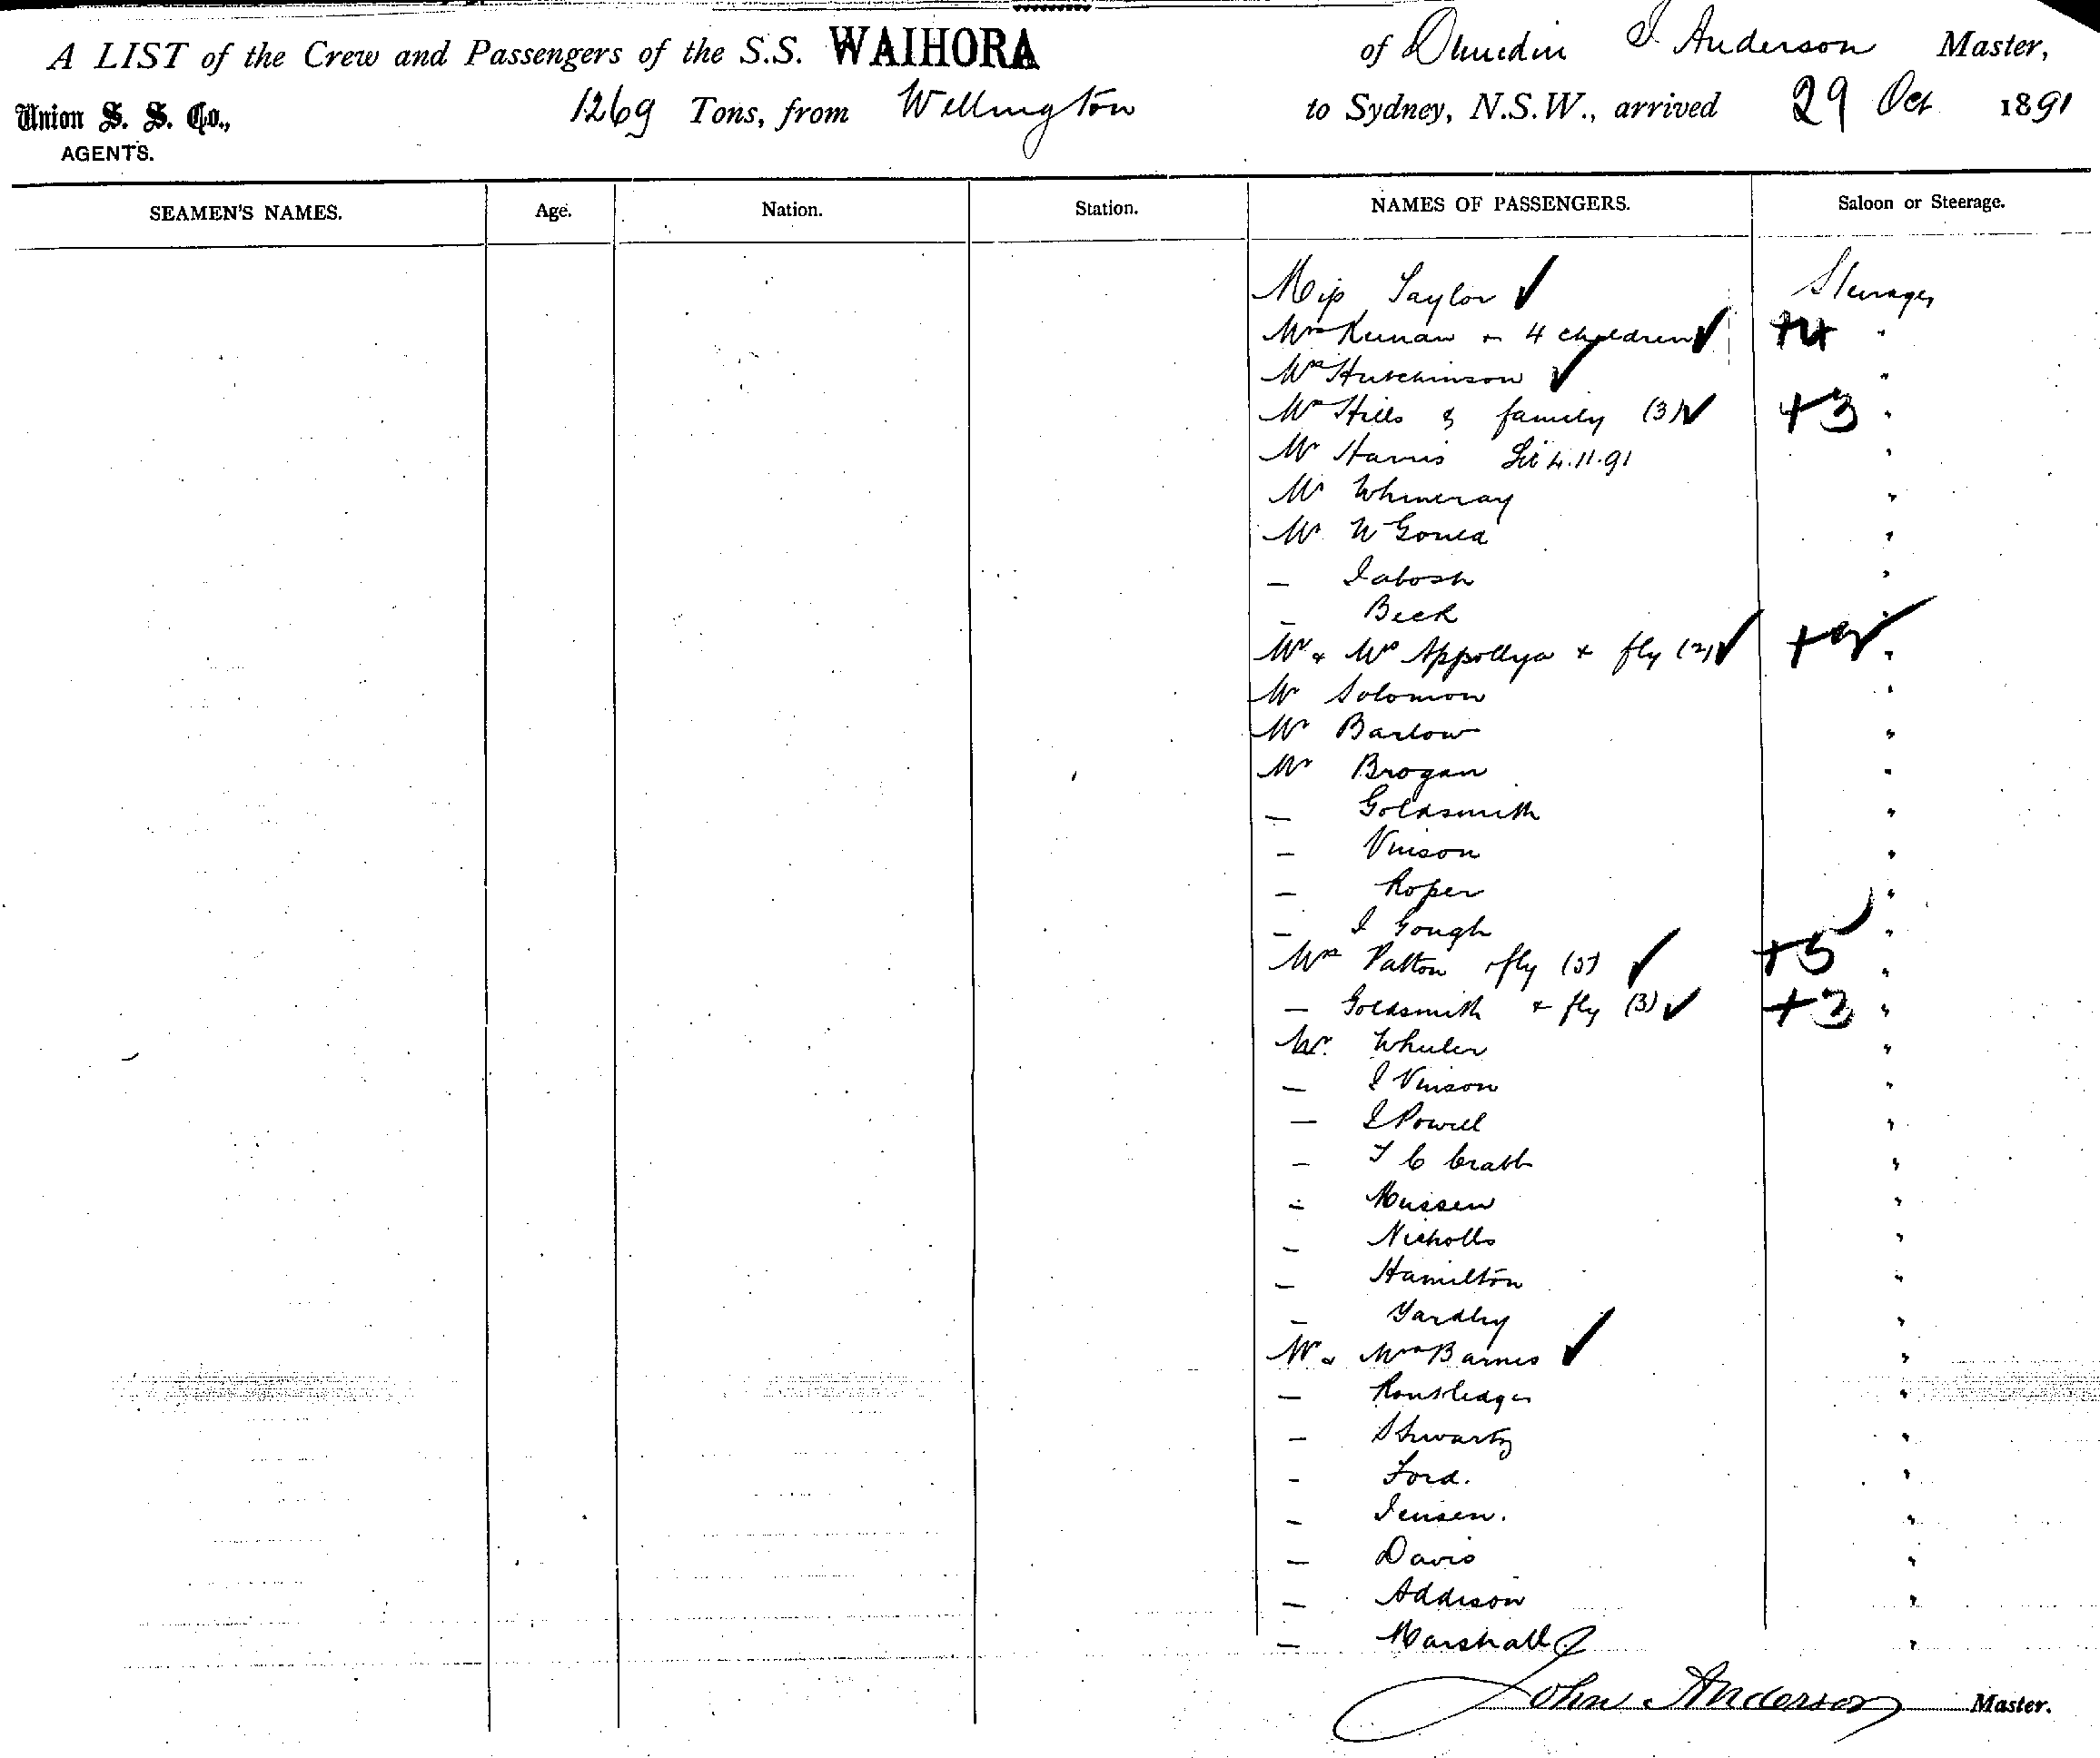 A LIST of the Crew and Passengers of the S.S. WAIHORA of Dunedin J Anderson Master,
Union S. S. Co., AGENTS. 1269 Tons, from Wellington to Sydney, N.S.W., arrived 29 Oct 1891
SEAMEN'S NAMES. Age. Nation. Station. NAMES OF PASSENGERS. Saloon or Steerage.
Miss Taylor ✓ Steerage
Mrs Keenan + 4 children ✓ +4 "
Mrs Hutchinson ✓ "
Mrs Hills & family (3) ✓ +3 "
Mr Harris 4.11.91 "
Mr Whineray "
Mr W Gould "
— "
— Beck "
Mr & Mrs Appollya + fly (2) ✓ +2 "
Mr Solomon "
Mr Barlow "
Mr Brogan "
— Goldsmith "
— Vinson "
— Roper "
— J Gough "
Mrs Patton + fly (5) ✓ +5 "
— Goldsmith + fly (3) ✓ +3 "
Mr. Wheeler "
— J Vinson "
— J Powell "
— T C Crabb "
— Mussen "
— Nicholls "
— Hamilton "
— Yardley "
Mr & Mrs Barnes ✓ "
— Routledge "
— Shwartz "
— Ford. "
— Jensen. "
— Davis "
— Addison "
— Marshall "
John Anderson Master.